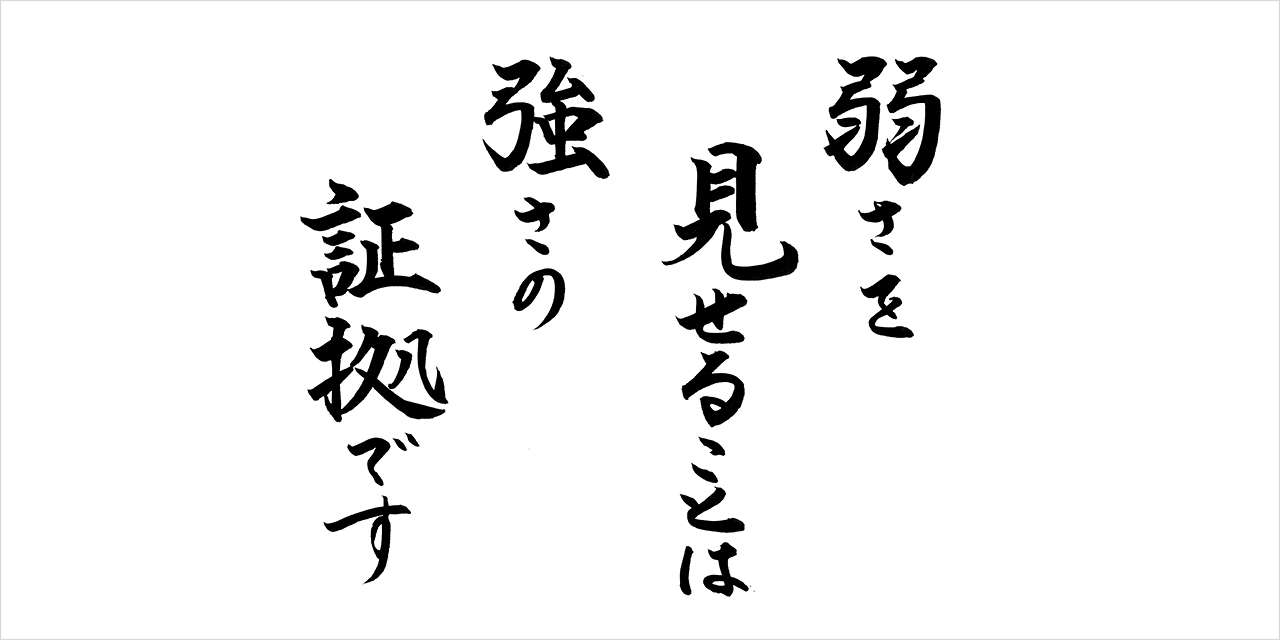 弱さを
見せることは
強さの
証拠です